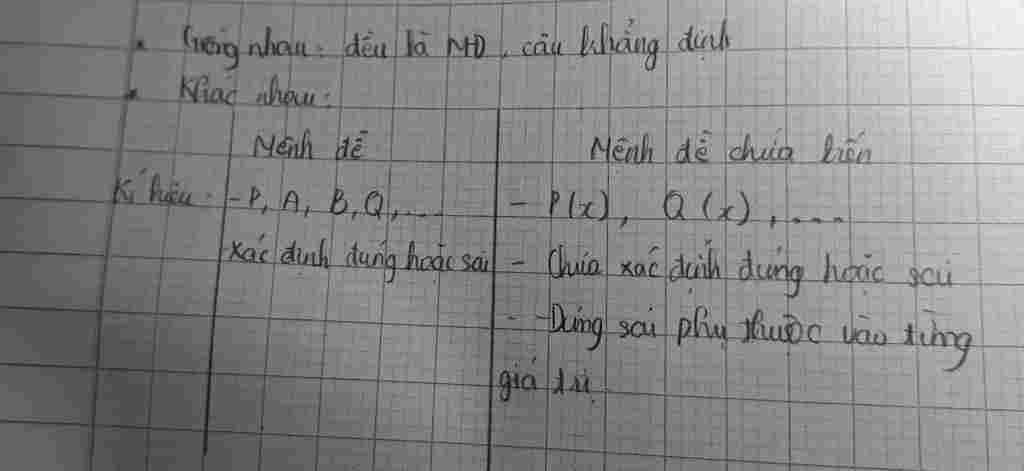 • Giống nhau: đều là MĐ, câu khẳng định
• Khác nhau:
Mệnh đề
Mệnh đề chứa biến
Kí hiệu: - P, A, B, Q, ...
- P(x), Q(x), ....
Xác định đúng hoặc sai
- Chưa xác định đúng hoặc sai
- Đúng sai phụ thuộc vào từng
giá trị